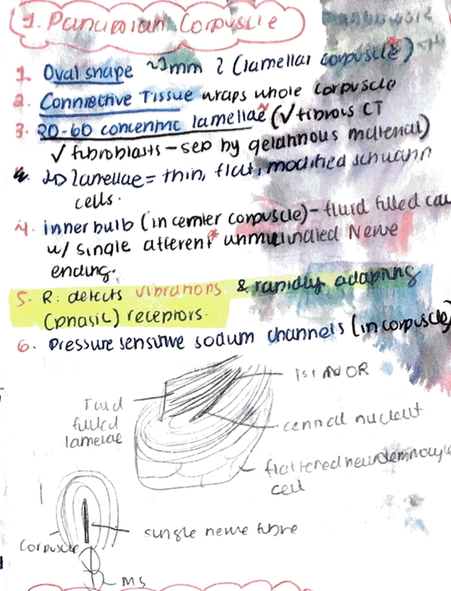 1. Pancinian Corpuscle
1. Oval shape ~1mm 2 (lamellar corpuscle)
2. Connective Tissue wraps whole corpuscle
3. 20-60 concentric lamellae (✓ fibrous CT
✓ fibroblasts - sep by gelatinous material)
lamellae = thin, flat, modified schwann
cells.
4. inner bulb (in center corpuscle) - fluid filled cav
w/ single afferent unmyelinated Nerve
ending.
5. R: detects vibrations & rapidly adapting
(phasic) receptors.
6. Pressure sensitive sodium channels (in corpuscle)
1st NOR
Fluid
filled
lamelae
central
flattened
cell
single nerve fibre
Corpuscle
MS